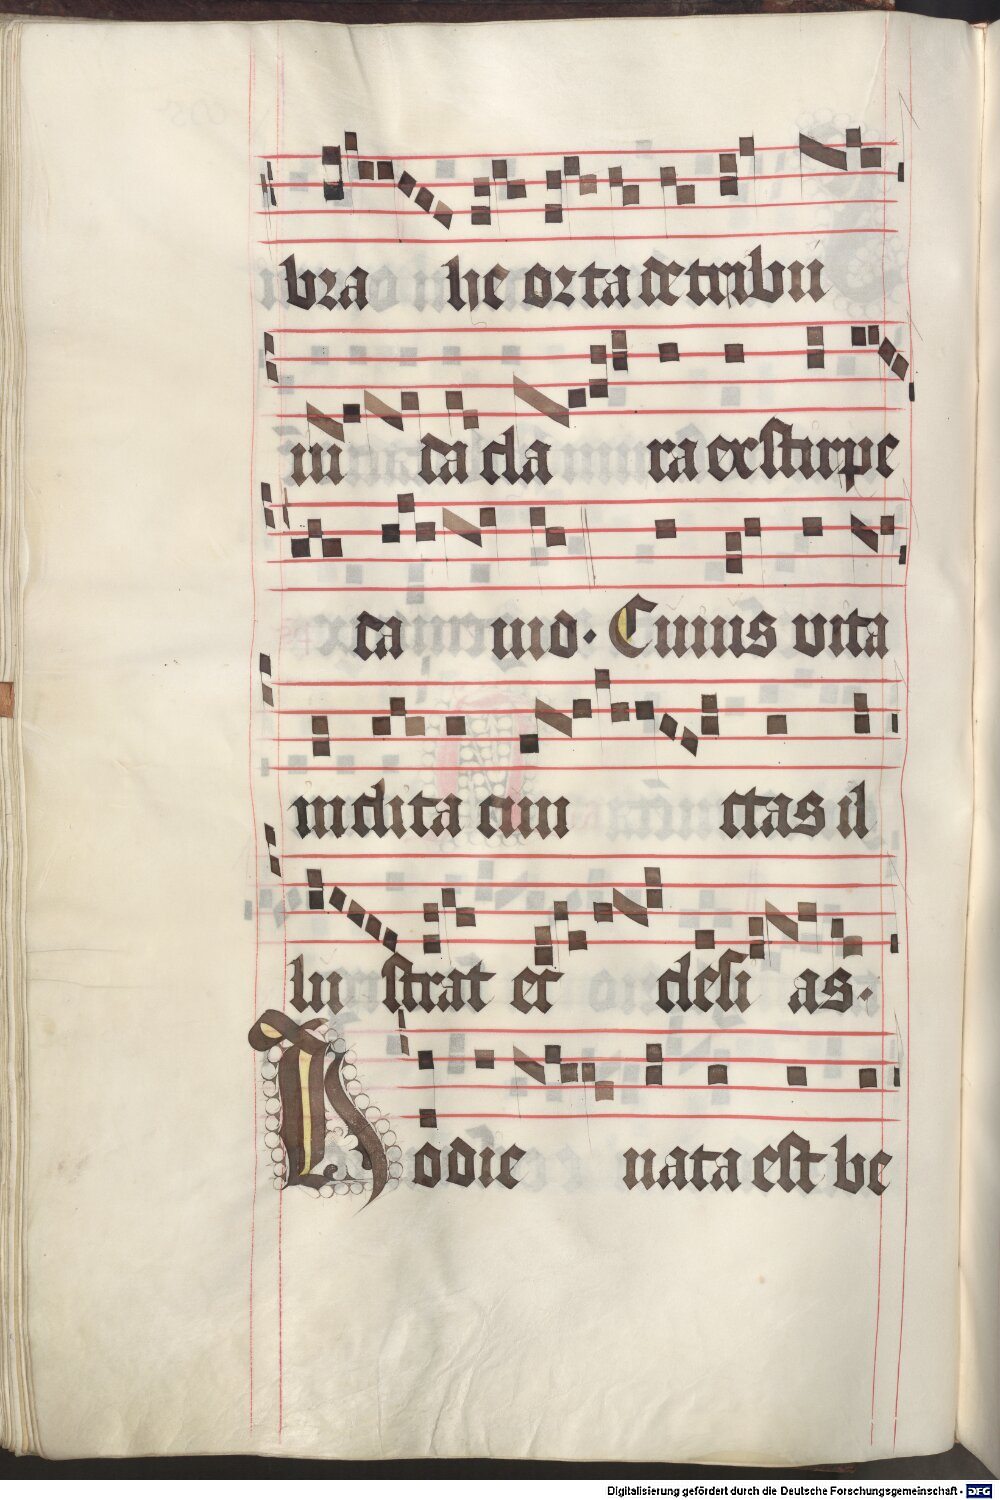 bra he orta de tribu
iu da cla ra ex stirpe
da uid. Cuius vita
inclita cun ctas il
lu strat ec clesi as.
Hodie nata est be
Digitalisierung gefördert durch die Deutsche Forschungsgemeinschaft - DFG